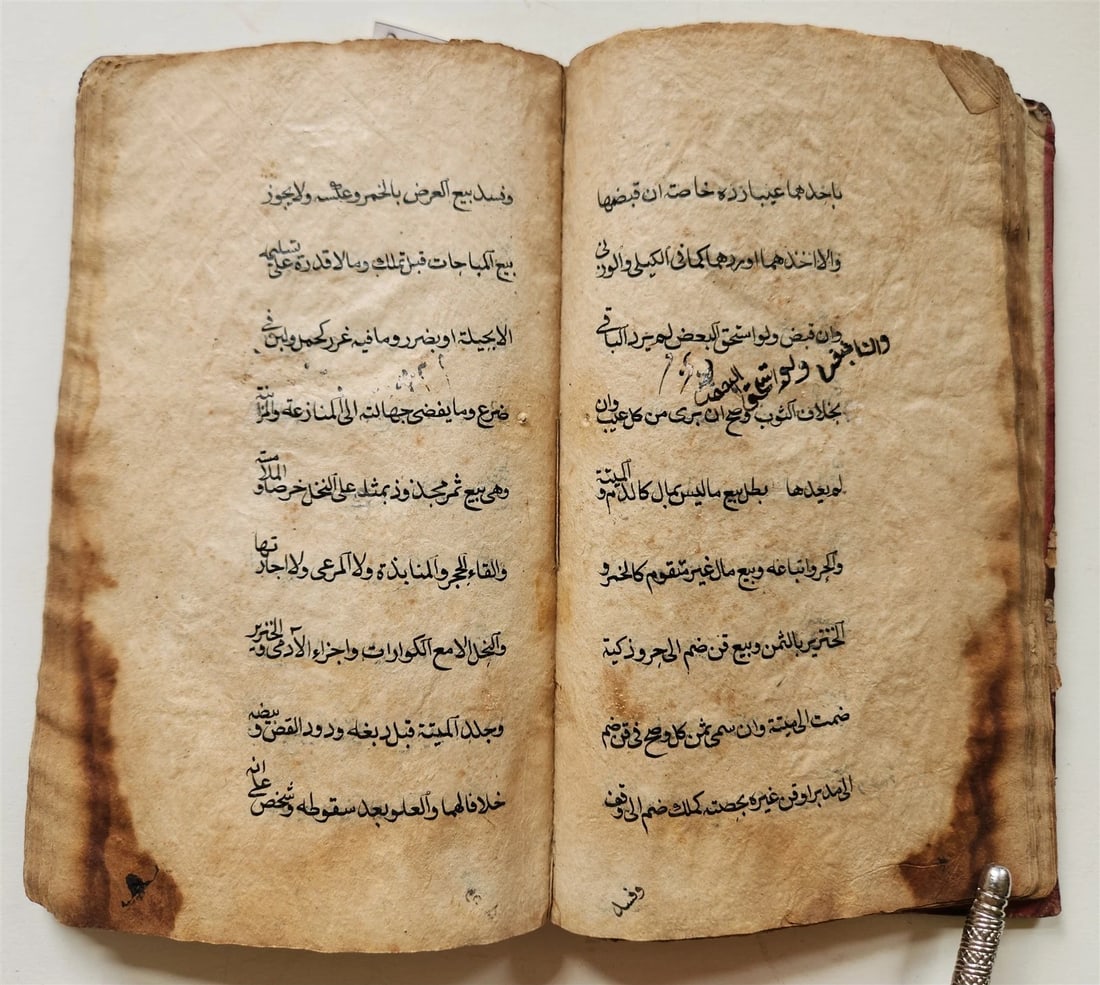 باحدهما عيبا رده خاصة ان قبضهما
والا اخذهما او ردهما كما فى الكيلى والوزنى
وان قبض ولو استحق البعض لم يرد الباقى
ولو استحق البعض
بخلاف الثوب وصح ان برى من كل عيب وان
لم يعدها بطل بيع ما ليس بمال كالدم والميتة
والحر واتباعه وبيع مال غير متقوم كالخمر و
الخنزير بالثمن وبيع قن ضم الى حر وذكية
ضمت الى ميتة وان سمى ثمن كل وصح فى قن ضم
الى مدبر او قن غيره بحصته كملك ضم الى وقف
وفسد
وفسد بيع العرض بالخمر وعكسه ولا يجوز
بيع المباحات قبل تملك وما لا قدرة على تسليمه
الا بحيلة او بضرر وما فيه غرر كحمل ولبن فى
ضرع وما يفضى جهالته الى المنازعة والمزابنة
وهى بيع ثمر مجذوذ بمثله على النخل خرصا والملامسة
والقاء الحجر والمنابذة ولا المرعى ولا اجارتها
والنحل الا مع الكوارات واجزاء الآدمى والخنزير
وجلد الميتة قبل دبغه ودود القز وبيضه
خلافا لهما والعلو بعد سقوطه وشخص على انه